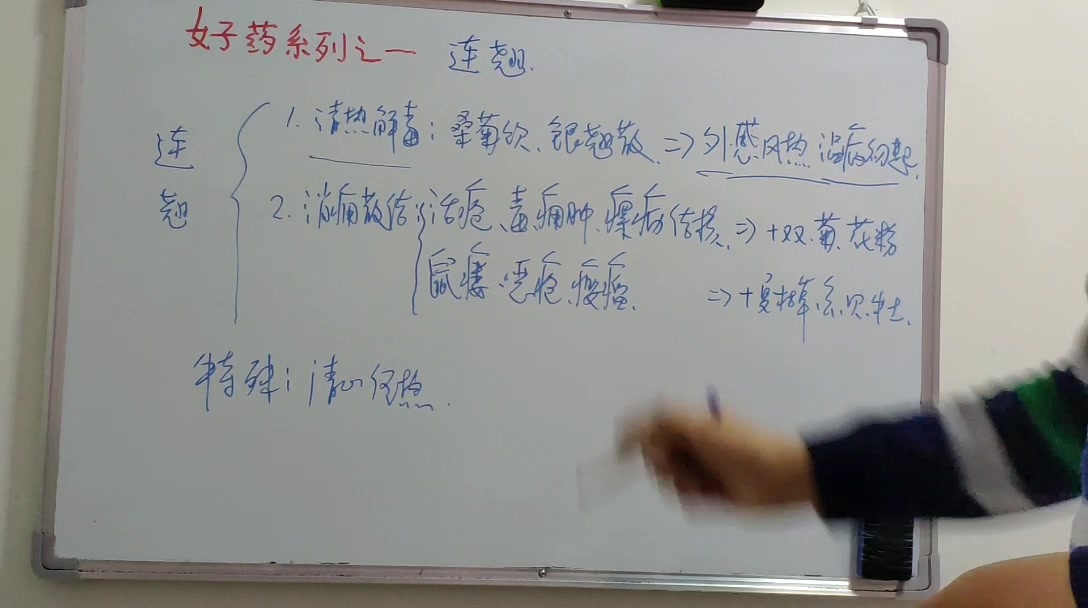 好药系列之一 连翘.
连翘
1. 清热解毒: 桑菊饮、银翘散 ⇒ 外感风热 温病初起.
2. 消痈散结: 治疮、毒痈肿、瘰疬结核 ⇒ +双.菊.花粉
鼠瘘.恶疮.瘿瘤. ⇒ +夏枯草.玄.贝.牡.
特殊: 清心经热.